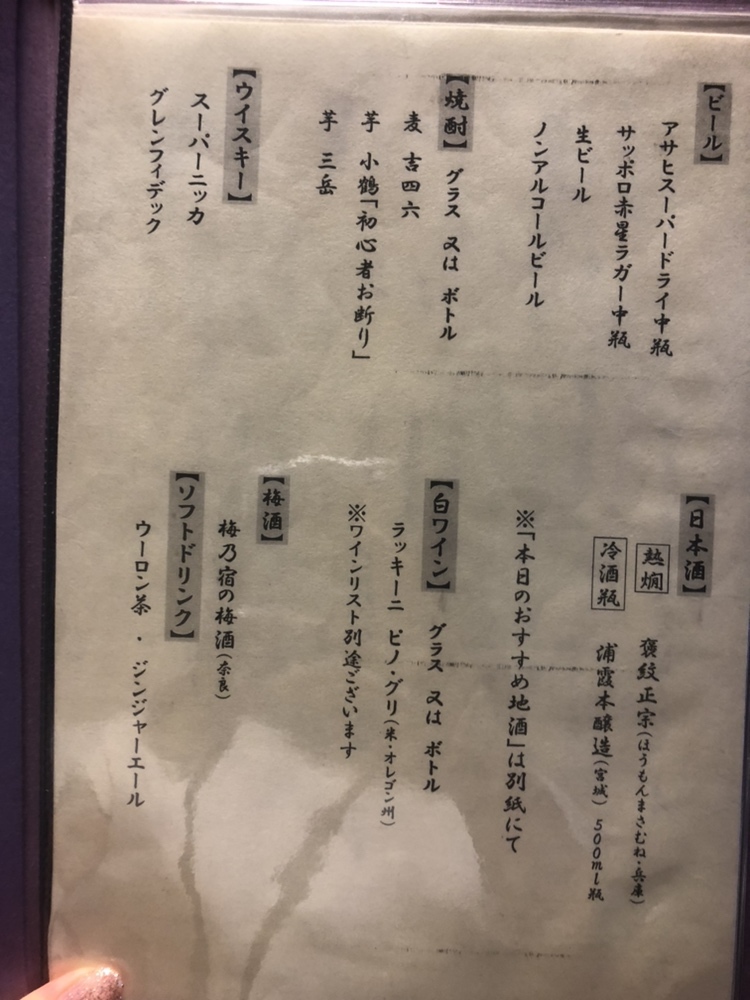 【ビール】
アサヒスーパードライ中瓶
サッポロ赤星ラガー中瓶
生ビール
ノンアルコールビール
【焼酎】 グラス 又は ボトル
麦 吉四六
芋 小鶴「初心者お断り」
芋 三岳
【ウイスキー】
スーパーニッカ
グレンフィデック
【日本酒】
熱燗 褒紋正宗(ほうもんまさむね・兵庫)
冷酒瓶 浦霞本醸造(宮城) 500ml瓶
※「本日のおすすめ地酒」は別紙にて
【白ワイン】 グラス 又は ボトル
ラッキーニ ピノ・グリ(米・オレゴン州)
※ワインリスト別途ございます
【梅酒】
梅乃宿の梅酒(奈良)
【ソフトドリンク】
ウーロン茶 ・ ジンジャーエール